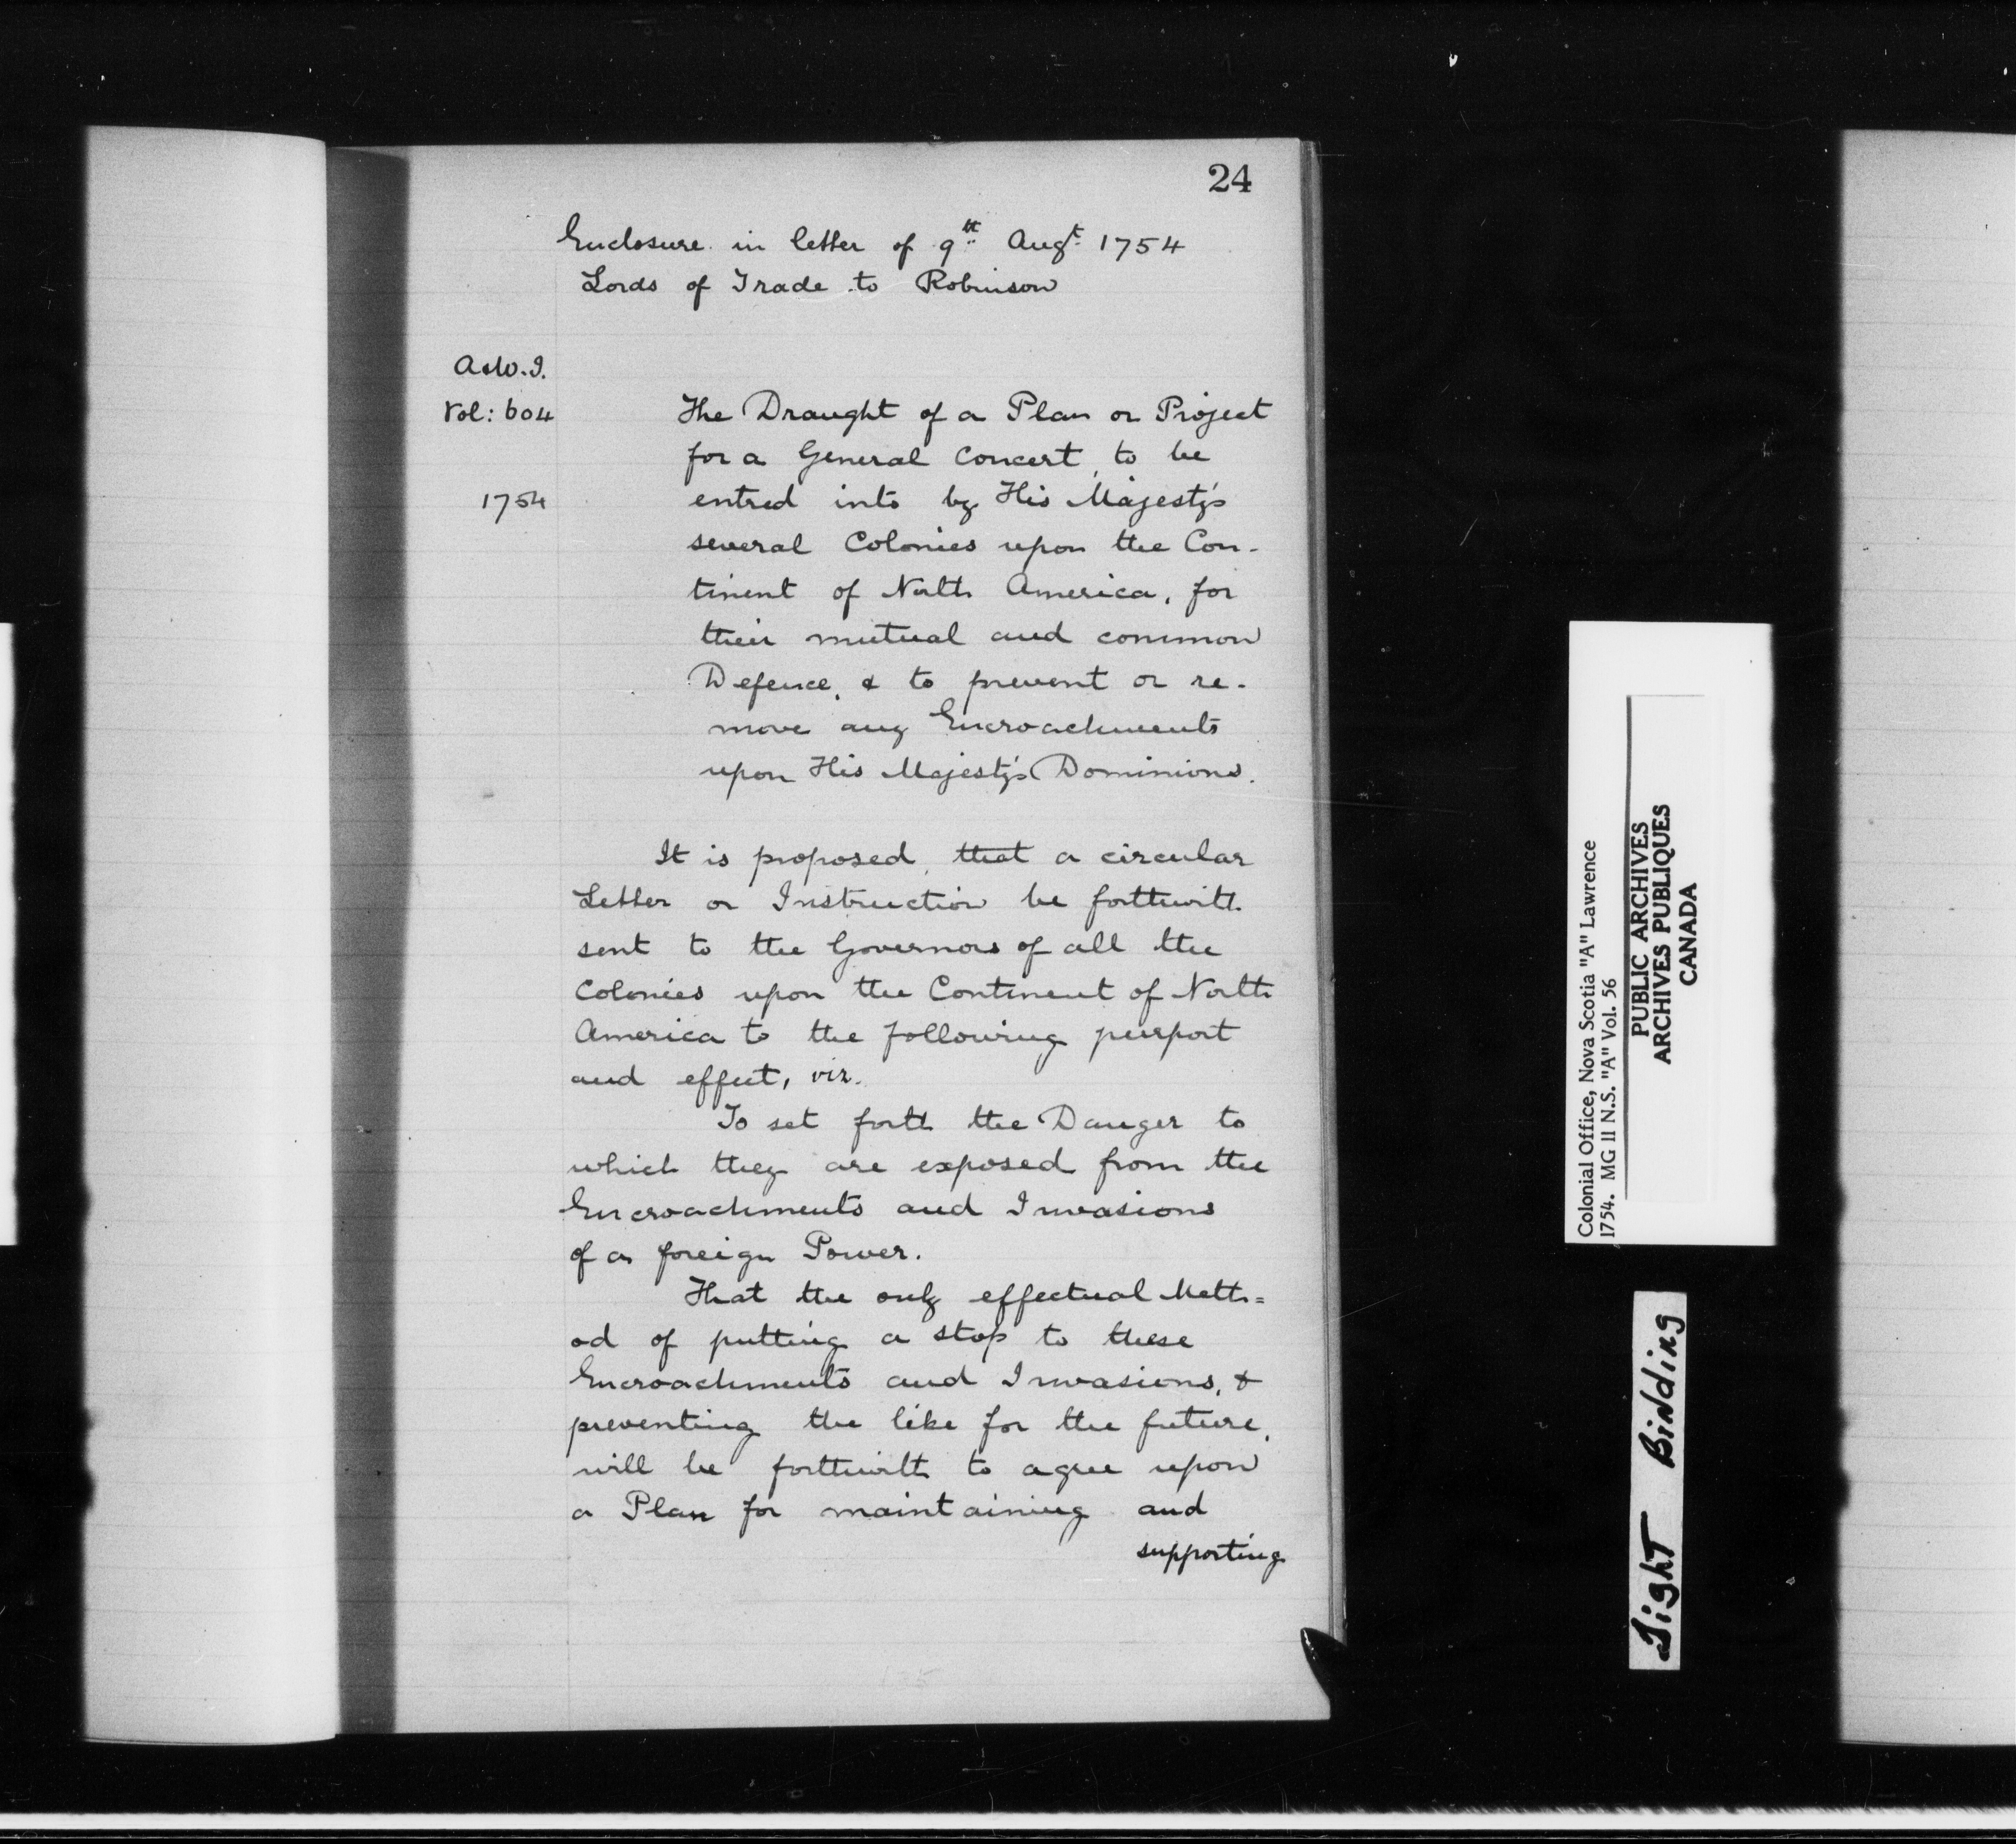 24
Enclosure in letter of 9th Augt 1754
Lords of Trade to Robinson
A & W. I.
Vol: 604
1754
The Draught of a Plan or Project
for a General Concert, to be
entred into by His Majesty's
several Colonies upon the Con-
tinent of North America, for
their mutual and common
Defence, & to prevent or re-
move any Encroachments
upon His Majesty's Dominions.
It is proposed, that a circular
Letter or Instruction be forthwith
sent to the Governors of all the
Colonies upon the Continent of North
America to the following purport
and effect, viz.
To set forth the Danger to
which they are exposed from the
Encroachments and Invasions
of a foreign Power.
That the only effectual Meth=
od of putting a stop to these
Encroachments and Invasions, &
preventing the like for the future,
will be forthwith to agree upon
a Plan for maintaining and
supporting
Colonial Office, Nova Scotia "A" Lawrence
1754. MG 11 N.S. "A" Vol. 56
PUBLIC ARCHIVES
ARCHIVES PUBLIQUES
CANADA
Tight Bindding